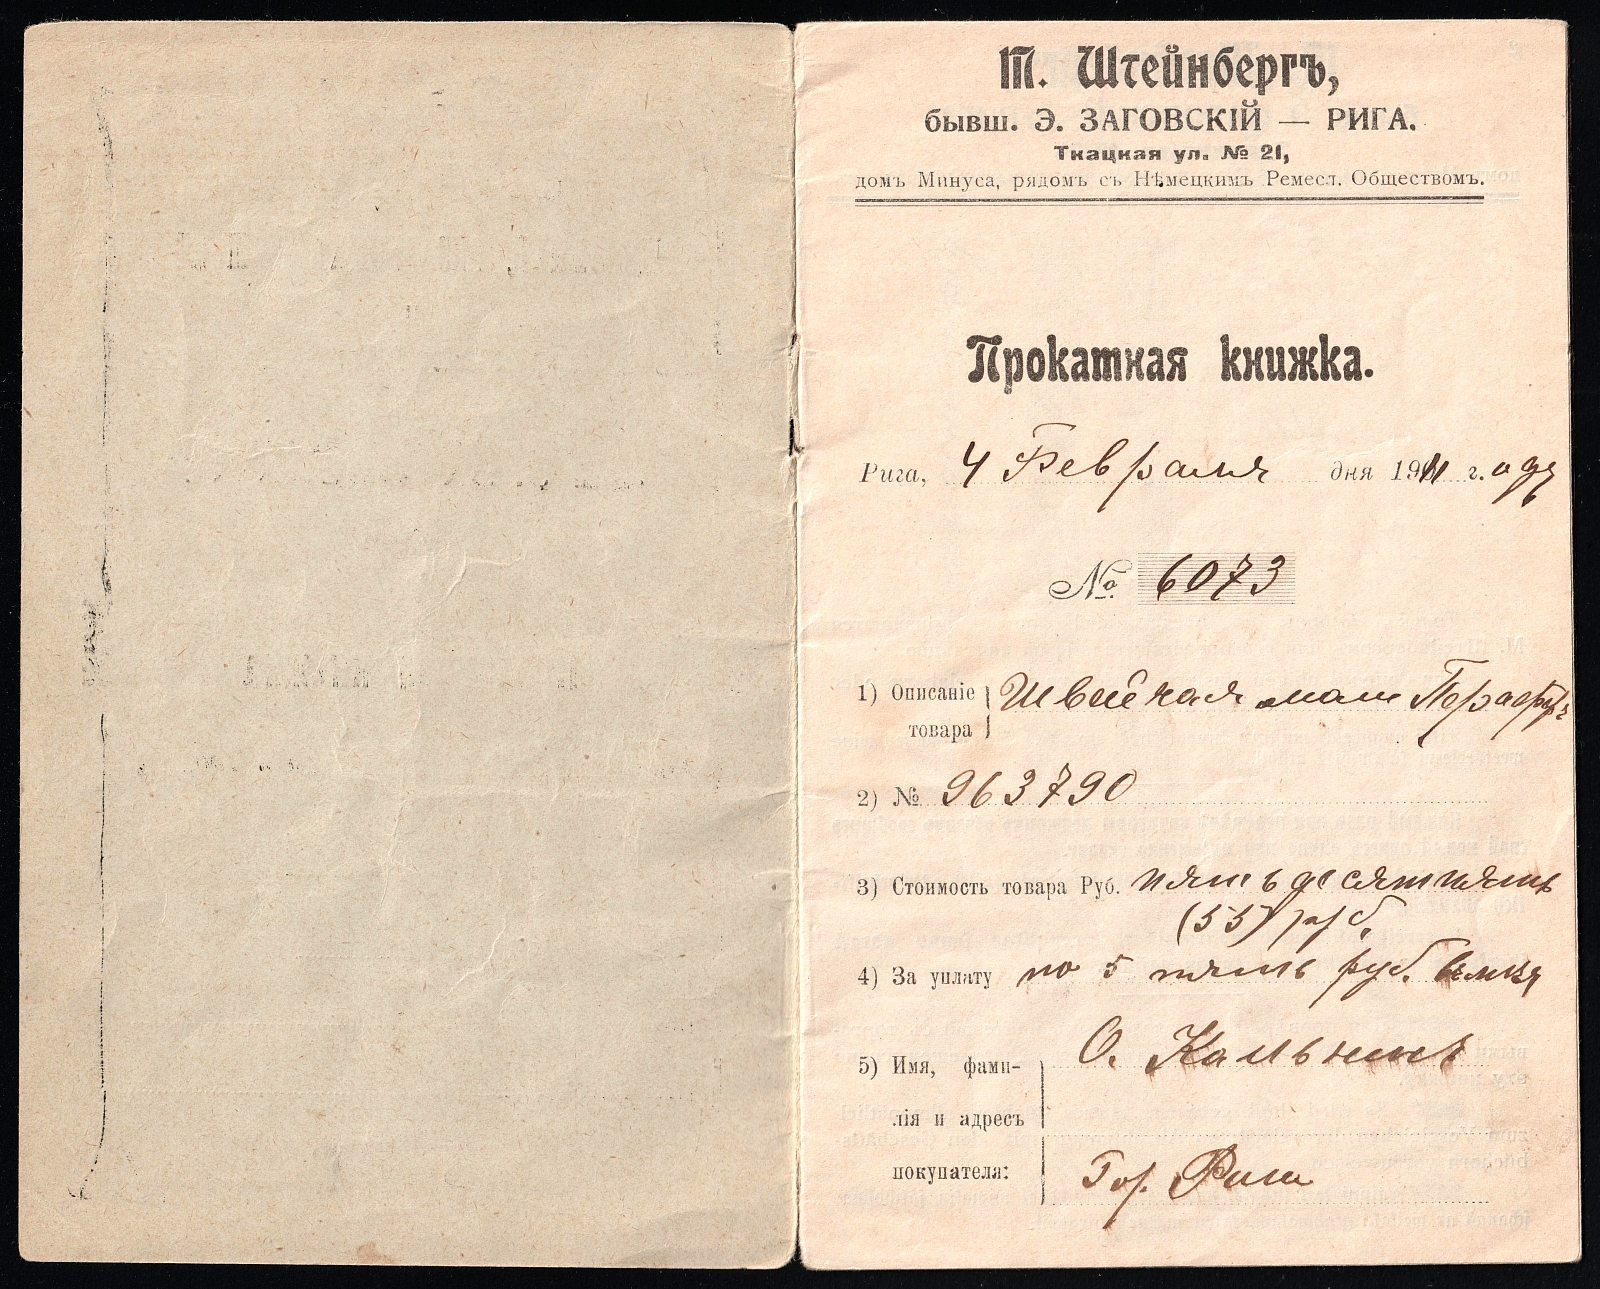 М. Штейнбергъ,
бывш. Э. ЗАГОВСКІЙ — РИГА.
Ткацкая ул. № 21,
домъ Минуса, рядомъ съ Нѣмецкимъ Ремесл. Обществомъ.
Прокатная книжка.
Рига, 4 Февраля дня 1911 г. ода
№ 6073
1) Описаніе Швейная маш
товара
2) № 963790
3) Стоимость товара Руб. пятьдесятпять
(55) руб.
4) За уплату по 5 пять руб.
О. Кальнинъ
5) Имя, фами-
лія и адресъ
покупателя: Гор. Рига